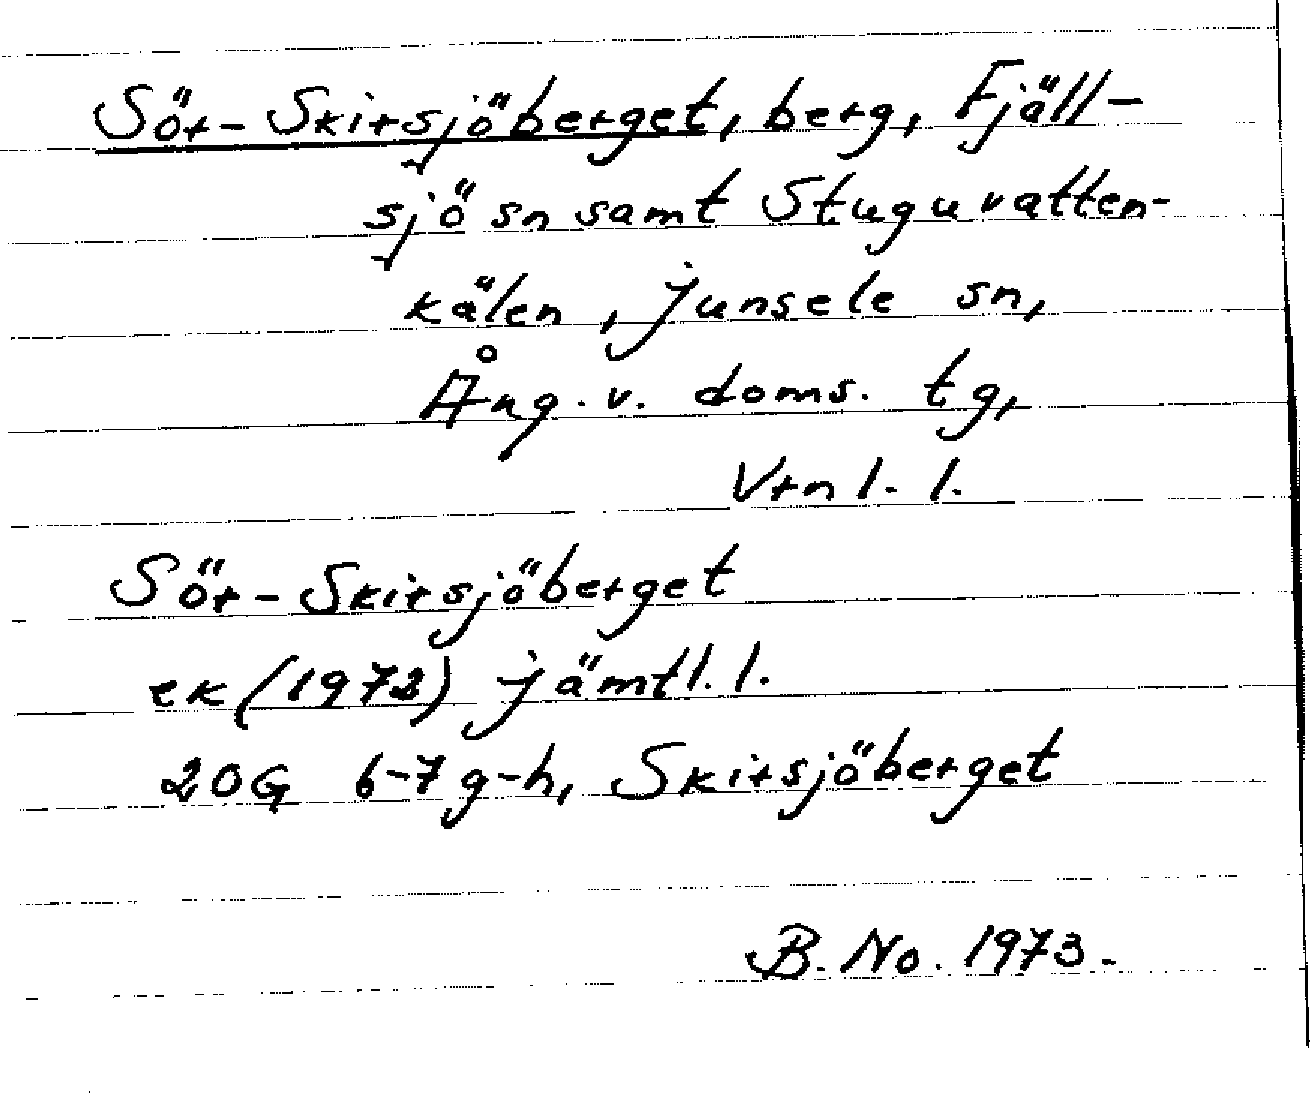 Sör-Skirsjöberget, berg, Fjäll-
sjö sn samt Stuguvatten-
kälen, Junsele sn,
Ång. v. doms. tg,
Vrnl. l.
Sör-Skirsjöberget
ek (1972) Jämtl. l.
20G 6-7 g-h, Skirsjöberget
B. No. 1973.